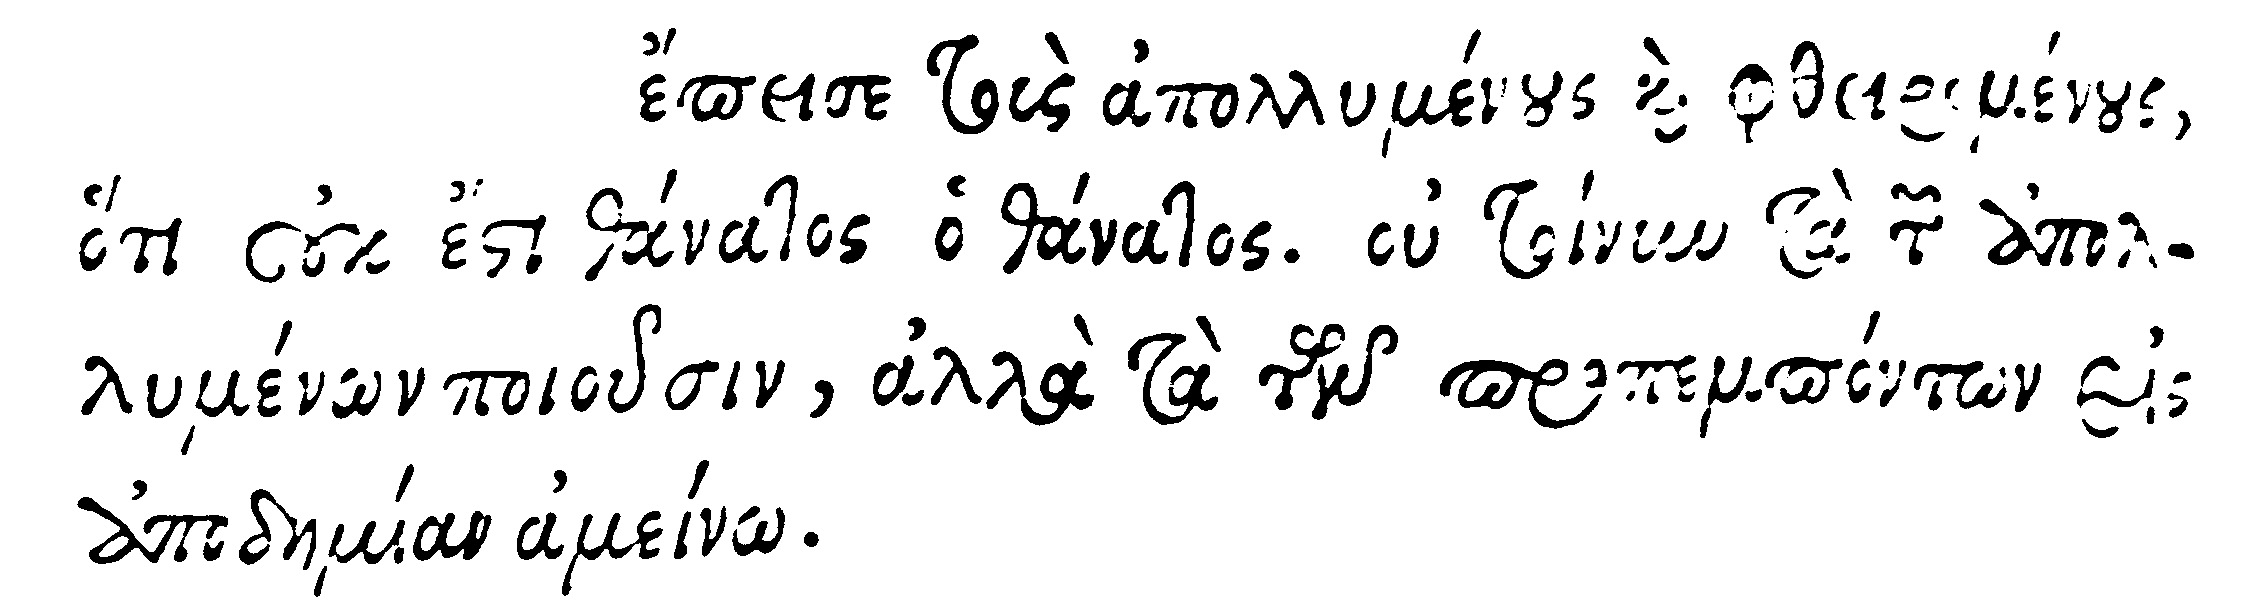 ἔπεισε τοὺς ἀπολλυμένους καὶ φθειρομένους,
ὅτι οὐκ ἔστι θάνατος ὁ θάνατος. οὐ τοίνυν τὰ τῶν ἀπολ-
λυμένων ποιοῦσιν, ἀλλὰ τὰ τῶν προπεμπόντων εἰς
ἀποδημίαν ἀμείνω.